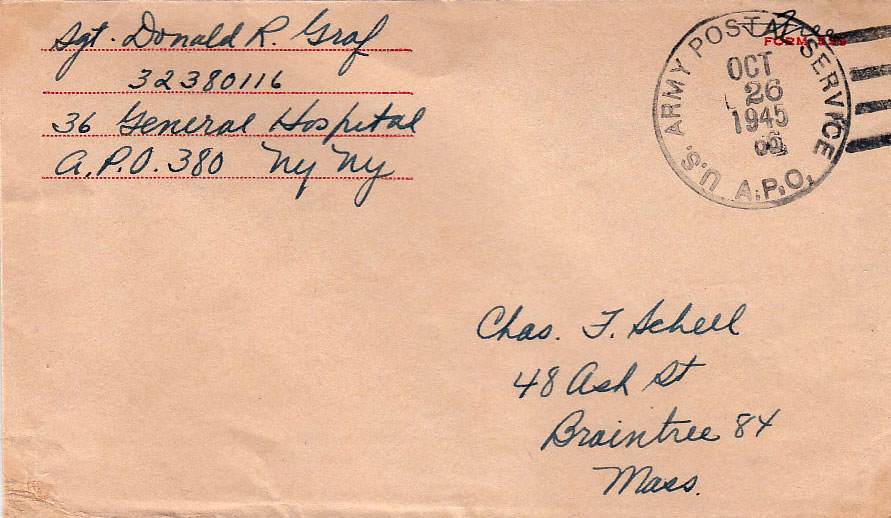 Sgt. Donald R. Graf
32380116
36 General Hospital
A.P.O. 380 Ny Ny
Free
FORM
U.S. ARMY POSTAL SERVICE
OCT
26
1945
A.P.O.
Chas. F. Scheel
48 Ash St
Braintree 84
Mass.